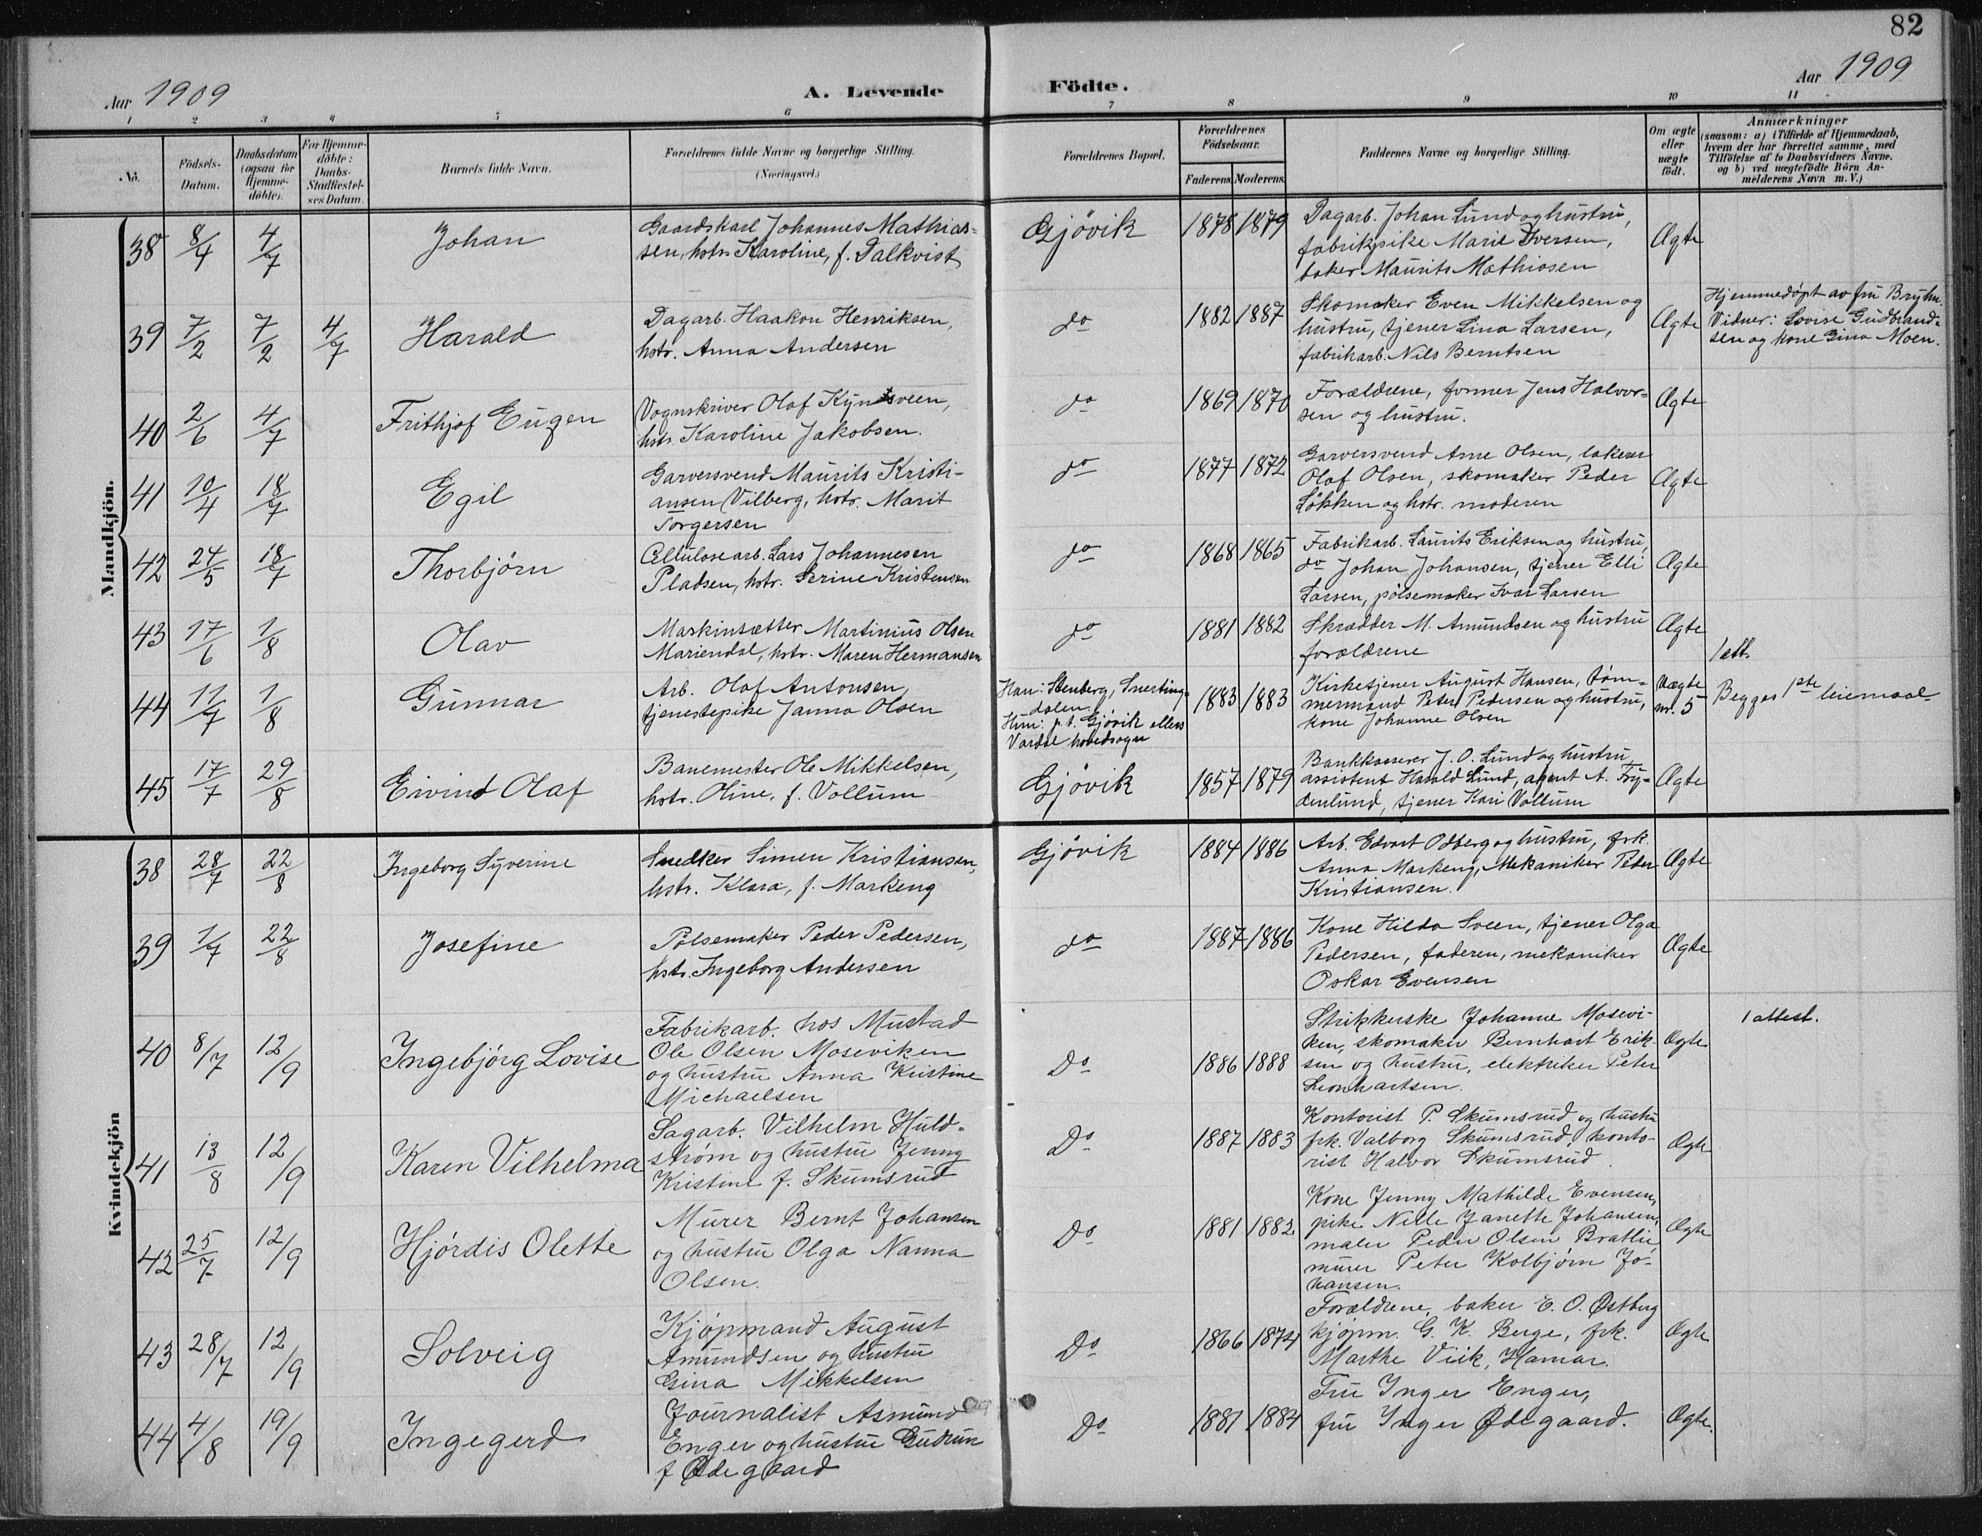 82
Aar 1909
A. Levende Födte.
Aar 1909
1 2 3 4 5 6 7 8 9 10 11
No.
Födsels-
Datum.
Daabsdatum
(ogsaa for
Hjemme-
döbte).
For Hjemme-
döbte:
Daabs-
Stadfæstel-
ses Datum.
Barnets fulde Navn.
Forældrenes fulde Navne og borgerlige Stilling.
(Næringsvei.)
Forældrenes Bopæl.
Forældrenes
Födselsaar.
Faderens. Moderens.
Faddernes Navne og borgerlige Stilling.
Om ægte
eller
uægte
födt.
Anmærkninger
(saasom: a) i Tilfælde af Hjemmedaab,
hvem der har forrettet samme, med
Tilföielse af to Daabsvidners Navne.
og b) ved uægtefödte Börn An-
melderens Navn m. V.)
Mandkjön.
38 8/4 4/7 Johan
Gaardskarl Johannes Mathias-
sen, hstr. Karoline, f. Dalkvist
Gjövik 1878 1879
Dagarb. Johan Lund og hustru,
fabrikpike Marie Iversen,
baker Maurits Mathiasen
Ægte
39 7/2 7/2 4/7 Harald
Dagarb. Haakon Henriksen,
hstr. Anna Andersen
do 1882 1887
Skomaker Even Mikkelsen og
hustru, tjener Lina Larsen,
fabrikarb. Nils Berntsen
Ægte
Hjemmedøpt av fru Bryhn.
Vidner: Lovise Gudbrand-
sen og kone Gina Moen.
40 2/6 4/7 Frithjof Eugen
Vognskriver Olaf Kyndsveen,
hstr. Karoline Jakobsen.
do 1869 1870
Forældrene, former Jens Halvor-
sen og hustru.
Ægte
41 10/4 18/7 Egil
Garversvend Maurits Kristi-
ansen Vilberg, hstr. Marit
Torgersen
do 1877 1872
Garversvend Arne Olsen, lakerer
Olaf Olsen, skomaker Peder
Løkken og hstr. moderen
Ægte
42 24/5 18/7 Thorbjørn
Cellulosearb. Lars Johannesen
Pladsen, hstr. Serine Kristensen
do 1868 1865
Fabrikarb. Laurits Eriksen og hustru,
do Johan Johansen, tjener Elli
Larsen, pølsemaker Ivar Larsen
Ægte
43 17/6 1/8 Olav
Maskinsætter Martinius Olsen
Mariendal, hstr. Maren Hermansen
do 1881 1882
Skrædder M. Amundsen og hustru
forældrene
Ægte
1 att.
44 11/7 1/8 Gunnar
Arb. Olaf Antonsen,
tjenestepike Janna Olsen
Han: Stenberg, Snerting-
dalen.
Hun: p.t. Gjøvik ellers
Vardal hovedsogn
1883 1883
Kirketjener August Hansen, tøm-
mermand Peter Pedersen og hustru,
kone Johanne Olsen
Uægte
nr. 5
Begges 1ste leiemaal
45 17/7 29/8 Eivind Olaf
Banemester Ole Mikkelsen,
hstr. Oline, f. Vollum
Gjøvik 1857 1879
Bankkasserer J. O. Lund og hustru,
assistent Harald Lund, agent A. Fry-
denlund, tjener Kari Vollum
Ægte
Kvindekjön
38 28/7 22/8 Ingeborg Syverine
Snedker Simen Kristiansen,
hstr. Klara, f. Markeng
Gjøvik 1884 1886
Arb. Edvart Odberg og hustru, frk.
Anna Markeng, Mekaniker Peder
Kristiansen.
Ægte
39 1/7 22/8 Josefine
Pølsemaker Peder Pedersen,
hstr. Ingeborg Andersen
do 1887 1886
Kone Hilda Sveen, tjener Olga
Pedersen, faderen, mekaniker
Oskar Evensen
Ægte
40 8/7 12/9 Ingebjørg Lovise
Fabrikarb. hos Mustad
Ole Olsen Moseviken
og hustru Anna Kristine
Michaelsen
Do 1886 1888
Strikkerske Johanne Mosevi-
ken, skomaker Bernhart Erik-
sen og hustru, elektriker Peter
Leonhartsen.
Ægte
1 attest.
41 13/8 12/9 Karen Vilhelma
Sagarb. Vilhelm Huld-
strøm og hustru Jenny
Kristine f. Skumsrud
Do 1887 1883
Kontorist P. Skumsrud og hustru
frk. Valborg Skumsrud, konto-
rist Halvor Skumsrud.
Ægte
42 25/7 12/9 Hjørdis Olette
Murer Bernt Johansen
og hustru Olga Nanna
Olsen.
Do 1881 1882
Kone Jenny Mathilde Evensen,
pike Nille Janette Johansen,
maler Peder Olsen Bratlie,
murer Peter Kolbjørn Jo-
hansen.
Ægte
43 28/7 12/9 Solveig
Kjøpmand August
Amundsen og hustru
Gina Mikkelsen
Do 1866 1874
Forældrene, baker E. O. Østberg
kjøpm. G. K. Berge, frk.
Marthe Viik, Hamar.
Ægte
44 4/8 19/9 Ingegerd
Journalist Asmund
Enger og hustru Gudrun
f Ødegaard
Do 1881 1884
Fru Inger Enger,
fru Inger Ødegaard.
Ægte.